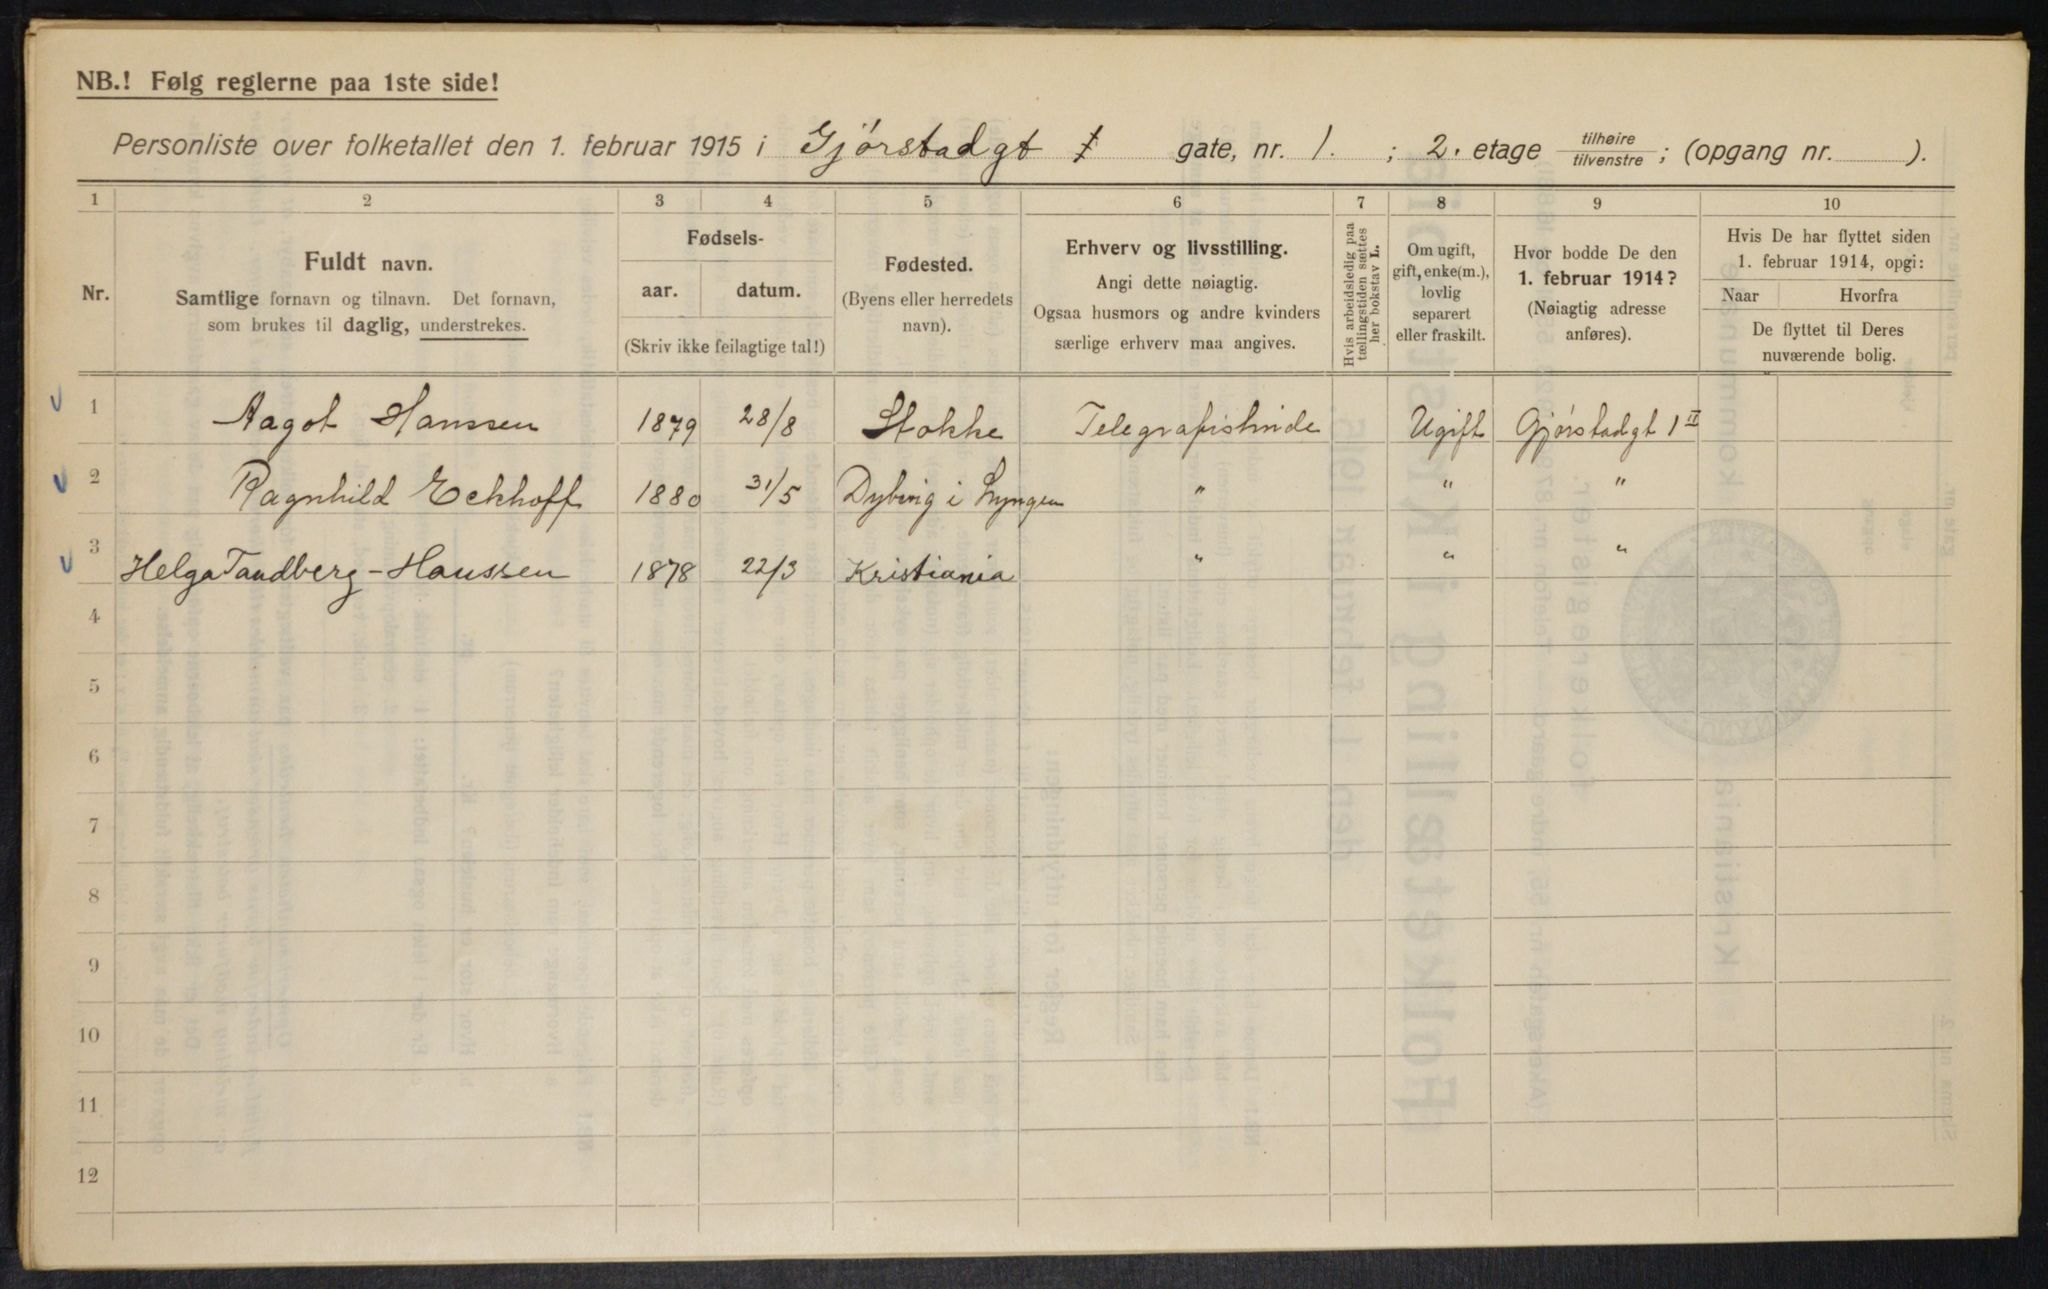 NB.! Følg reglerne paa 1ste side!
Personliste over folketallet den 1. februar 1915 i Gjørstadgt gate, nr. 1. ; 2. etage tilhøire/tilvenstre ; (opgang nr. ).
1 2 3 4 5 6 7 8 9 10
Nr.
Fuldt navn.
Samtlige fornavn og tilnavn. Det fornavn,
som brukes til daglig, understrekes.
Fødsels-
aar. datum.
(Skriv ikke feilagtige tal!)
Fødested.
(Byens eller herredets
navn).
Erhverv og livsstilling.
Angi dette nøiagtig.
Ogsaa husmors og andre kvinders
særlige erhverv maa angives.
Hvis arbeidsledig paa
tællingstiden sættes
her bokstav L.
Om ugift,
gift, enke(m.),
lovlig
separert
eller fraskilt.
Hvor bodde De den
1. februar 1914?
(Nøiagtig adresse
anføres).
Hvis De har flyttet siden
1. februar 1914, opgi:
Naar Hvorfra
De flyttet til Deres
nuværende bolig.
1 Aagot Hanssen 1879 28/8 Stokke Telegrafistinde Ugift Gjørstadgt 1 II
2 Ragnhild Eckhoff 1880 31/5 Dybvig i Lyngen " " "
3 Helga Tandberg-Hanssen 1878 22/3 Kristiania " " "
4
5
6
7
8
9
10
11
12